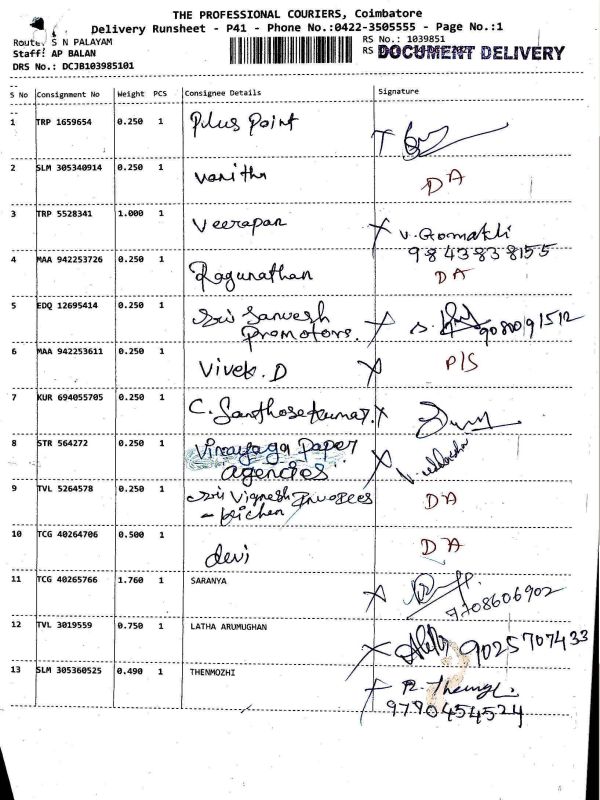 THE PROFESSIONAL COURIERS, Coimbatore
Delivery Runsheet - P41 - Phone No.:0422-3505555 - Page No.:1
Route: S N PALAYAM
RS No.: 1039851
Staff: AP BALAN
RS
DOCUMENT DELIVERY
DRS No.: DCJB103985101
S No Consignment No Weight PCS Consignee Details Signature
1 TRP 1659654 0.250 1 Plus Point
2 SLM 305340914 0.250 1 Vanitha DA
3 TRP 5528341 1.000 1 Veerapan X V. Gomathi
9843838155
4 MAA 942253726 0.250 1 Ragunathan DA
5 EDQ 12695414 0.250 1 Sri Sarvesh
Promotors. X 9080091512
6 MAA 942253611 0.250 1 Vivek. D X P/S
7 KUR 694055705 0.250 1 C. Santhosekumar. X
8 STR 564272 0.250 1 Vinayaga Paper
agencies X
9 TVL 5264578 0.250 1 Sri Vignesh
- kichen DA
10 TCG 40264706 0.500 1 devi DA
11 TCG 40265766 1.760 1 SARANYA X
9708606902
12 TVL 3019559 0.750 1 LATHA ARUMUGHAN X 9025707433
13 SLM 305360525 0.490 1 THENMOZHI X
9790454524